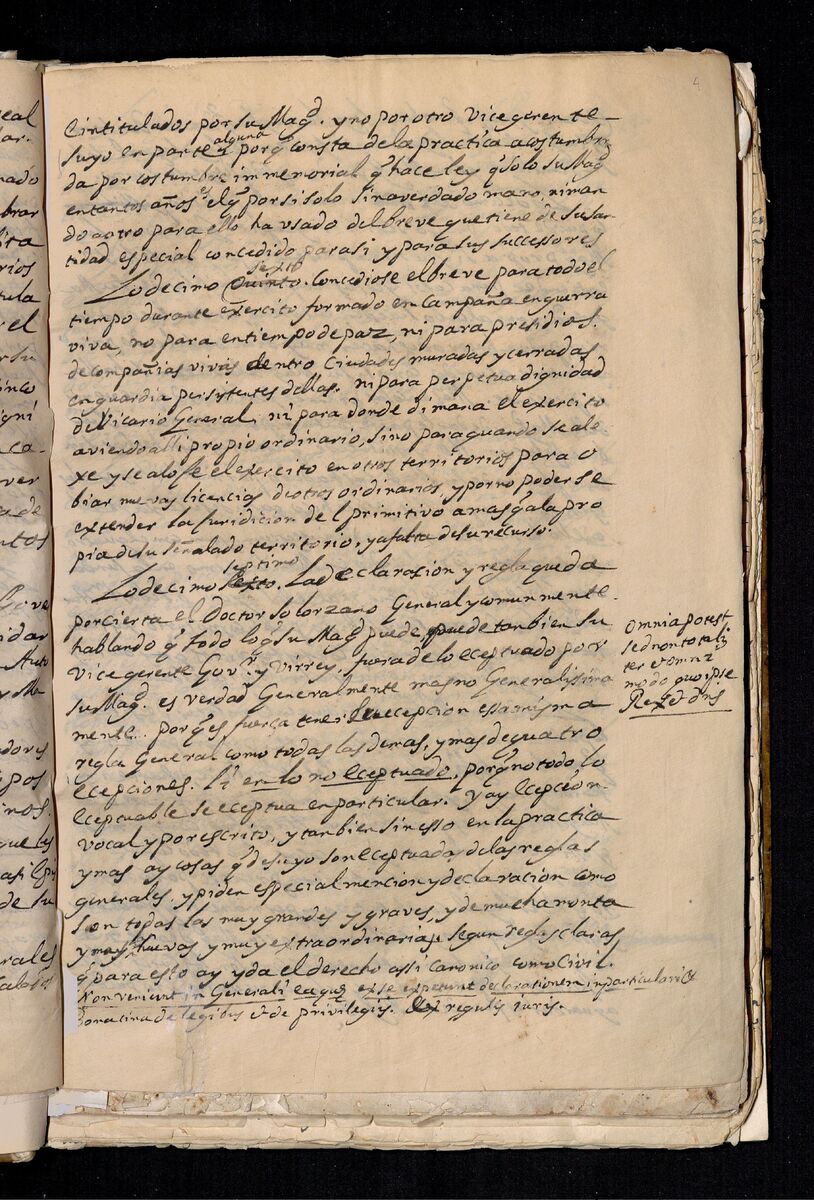 4
e intitulados por su Magd. y no por otro Vicegerente
suyo en parte alguna porq consta de la practica acostumbra
da por costumbre immemorial q hace ley q solo su Magd
en tantos años es el q por si solo sin aver dado mano, ni man
do a otro para ello ha usado del breve que tiene de su san
tidad especial concedido para si y para sus successores
Lo decimo sexto. Concediose el breve para todo el
tiempo durante exercito formado en campaña en guerra
viva, no para en tiempo de paz, ni para presidios.
de compañias vivas dentro Ciudades muradas y cerradas
en guardia persistentes dellas. ni para perpetua dignidad
de Vicario General, ni para donde dimana el exercito
aviendo alli propio ordinario, sino para quando se ale
xe y se aloxe el exercito en otros territorios para o
biar nuevas licencias de otros ordinarios y por no poderse
extender la Juridicion del primitivo a mas q a la pro
pia de su señalado territorio, y a falta de su recurso.
Lo decimo septimo. La declarasion y regla que da
por cierta el Doctor Solorzano General y comunmente
hablando q todo lo q su Magd puede, puede tanbien su
Vicegerente Govr. y Virrey, fuera de lo eceptuado por
su Magd. es verdad Generalmente mas no Generalissima
mente. porq es fuerça tener su ecepcion essa misma
regla General como todas las demas, y mas de quatro
ecepciones. Li en lo no eceptuado, porq no todo lo
eceptuable se eceptua en particular. Y ay ecepcion
vocal y por escrito, y tanbien sin esso en la practica
y mas ay cosas q de suyo son eceptuadas de las reglas
generales, y piden especial mencion y declaracion como
son todas las muy grandes y graves, y de mucha monta
y muy nuevas y muy extraordinarias segun reglas claras
q para esto ay y da el derecho assi canonico como Civil.
Non veniunt in Generali ea quæ ex se expetunt declarationem in particulari
de legibus et de privilegijs. et regulis iuris.
omnia potest
sed non totali
ter et omni
modo quo ipse
Rex et dns